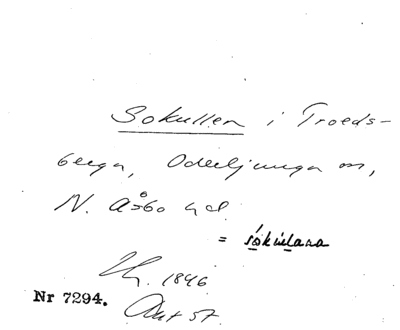 Sokullen i Troeds-
berga, Oderljunga sn,
N. Åsbo hd.
= sókúlana
1846
Nr 7294.